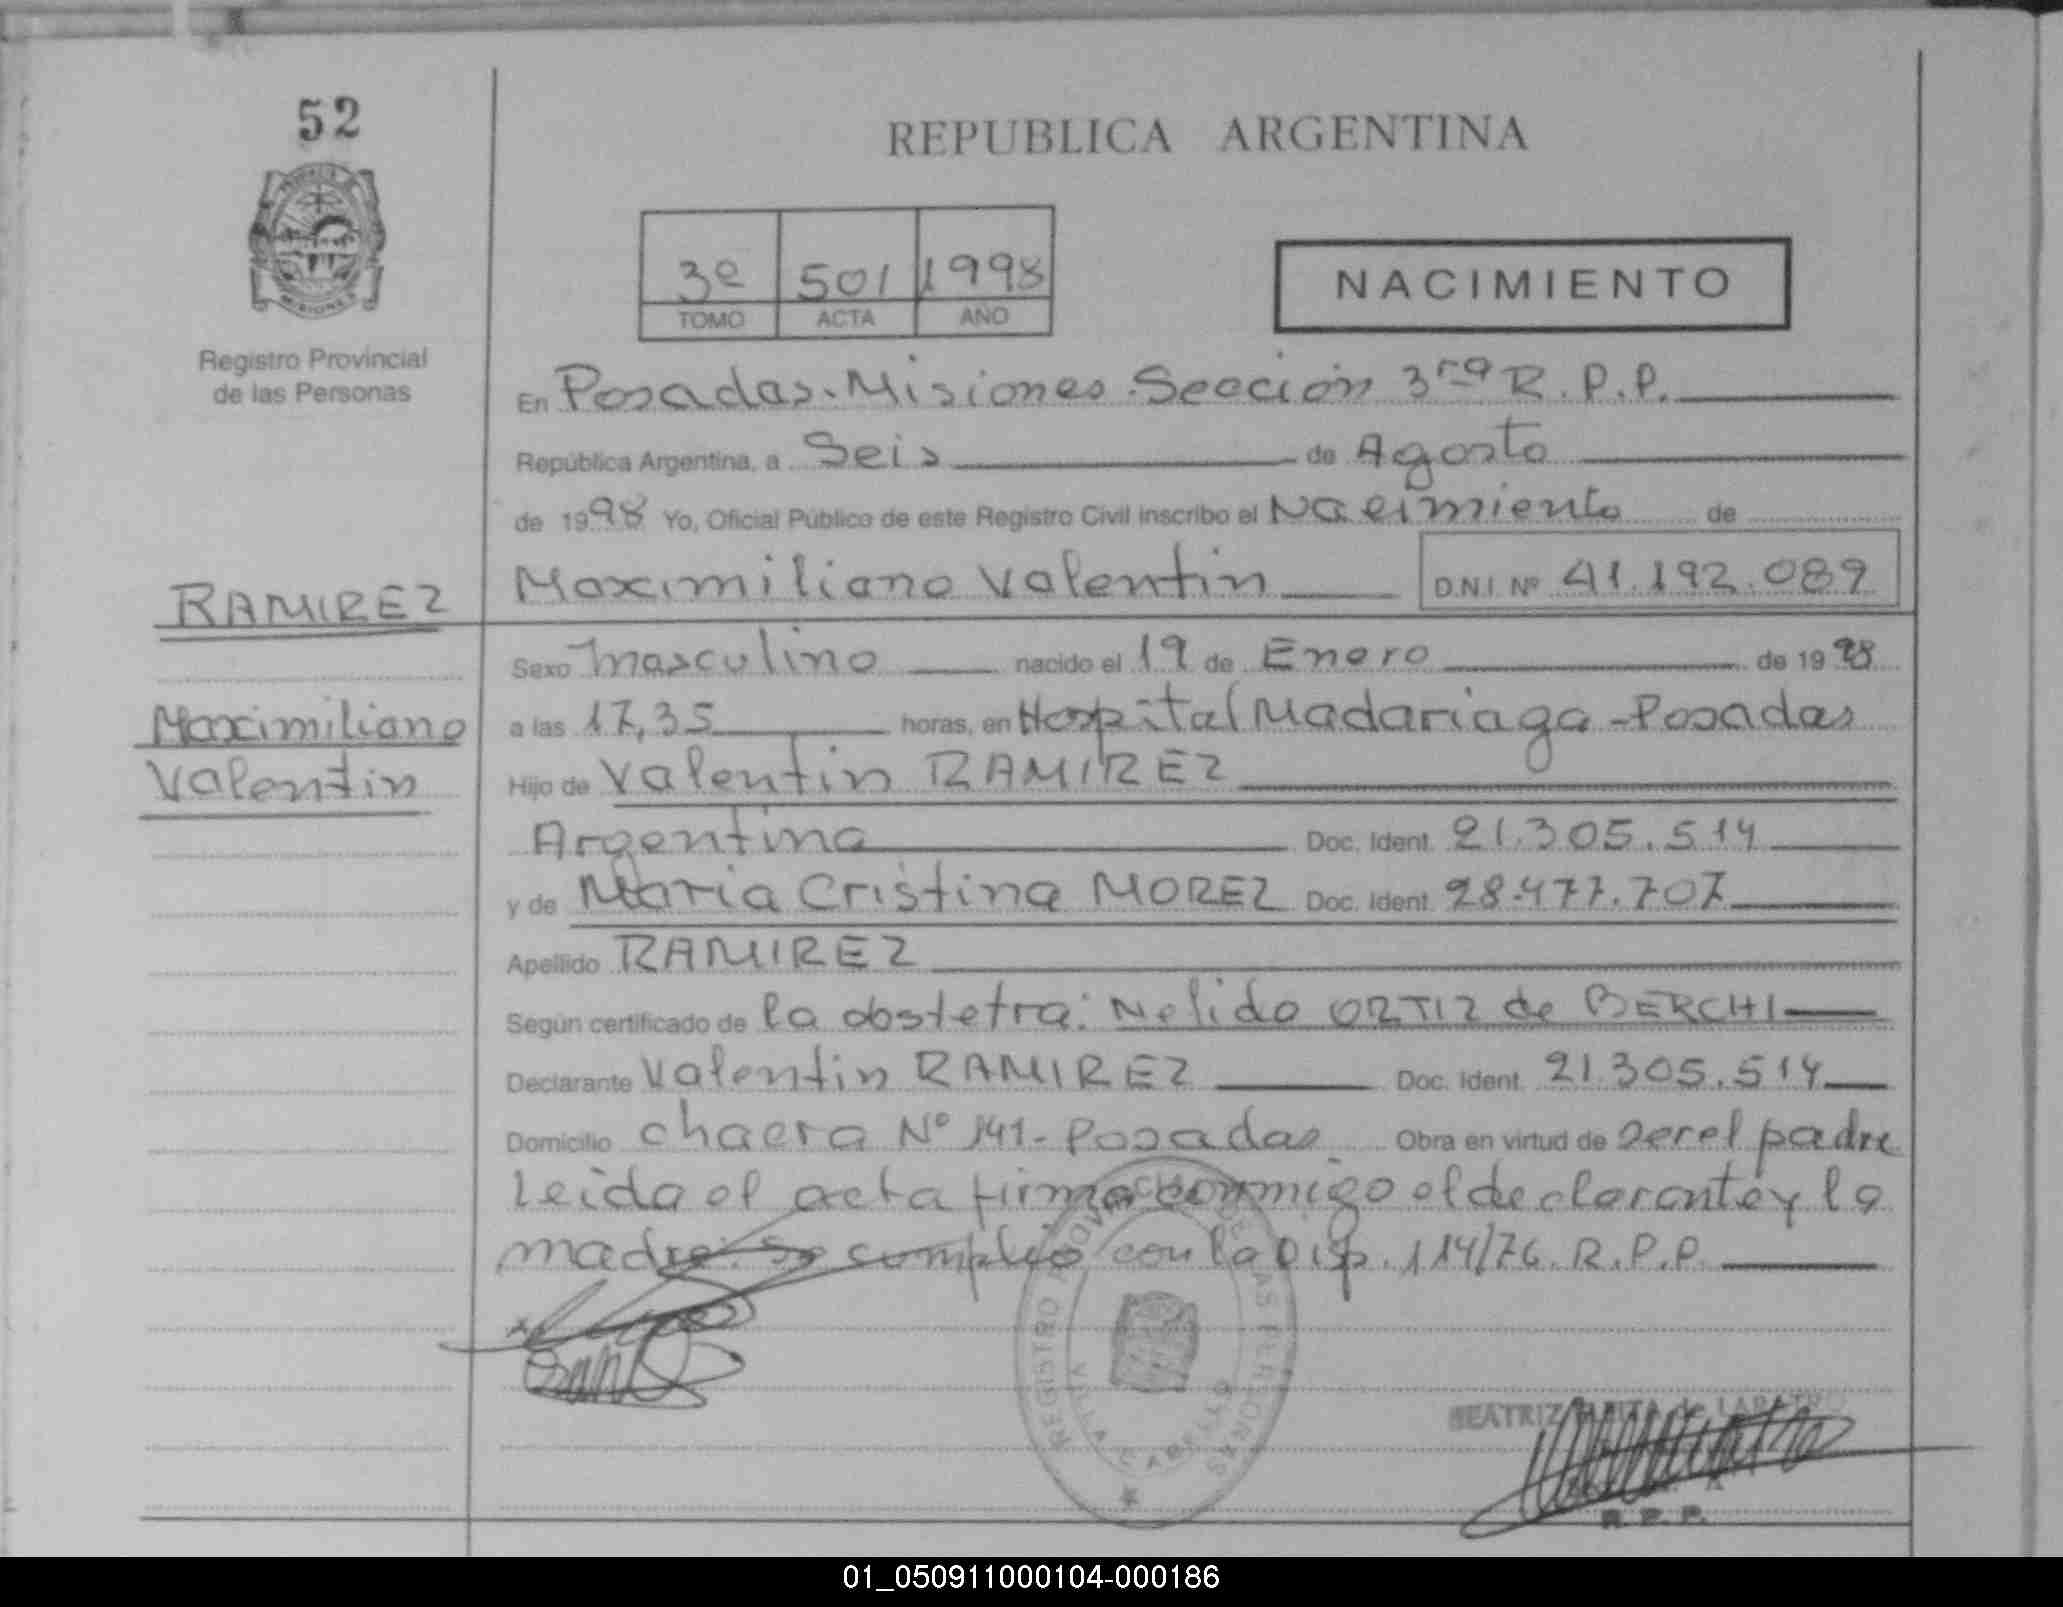 52
REPUBLICA ARGENTINA
3º 501 1998
TOMO ACTA AÑO
NACIMIENTO
Registro Provincial
de las Personas
En Posadas. Misiones. Sección 3ra R.P.P.
República Argentina, a Seis de Agosto
de 1998 Yo, Oficial Público de este Registro Civil inscribo el Nacimiento de
Maximiliano Valentin D.N.I. Nº 41.192.089
RAMIREZ
Maximiliano
Valentin
Sexo masculino nacido el 19 de Enero de 1998
a las 17,35 horas, en Hospital Madariaga - Posadas
Hijo de Valentin RAMIREZ
Argentina Doc. Ident. 21.305.514
y de Maria Cristina MOREZ Doc. Ident. 28.477.707
Apellido RAMIREZ
Según certificado de la obstetra: Nelida ORTIZ de BERCHI
Declarante Valentin RAMIREZ Doc. Ident. 21.305.514
Domicilio chacra Nº 141 - Posadas Obra en virtud de ser el padre
Leida el acta firma conmigo el declarante y la
madre. Se cumplió con la Disp. 114/76. R.P.P.
REGISTRO PROVINCIAL DE LAS PERSONAS
BEATRIZ
R. P. P.
01_050911000104-000186